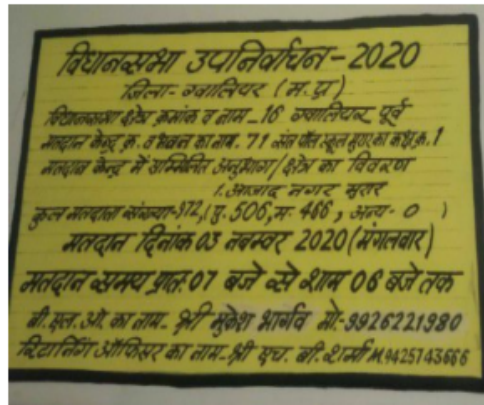 विधानसभा उपनिर्वाचन-2020
जिला- ग्वालियर (म.प्र)
विधानसभा क्षेत्र क्रमांक व नाम -16 ग्वालियर पूर्व
मतदान केन्द्र क्र. व भवन का नाम. 71 संत पॉल स्कूल मुरार का कक्ष क्र. 1
मतदान केन्द्र में सम्मिलित अनुभाग/क्षेत्र का विवरण
1. आजाद नगर मुरार
कुल मतदाता संख्या-972,(पु. 506,म- 466, अन्य- 0 )
मतदान दिनांक 03 नवम्बर 2020(मंगलवार)
मतदान समय प्रात: 07 बजे से शाम 06 बजे तक
बी.एल.ओ. का नाम- श्री मुकेश भार्गव मो:-9926221980
रिटार्निंग ऑफिसर का नाम-श्री एच. बी. शर्मा M.9425743666